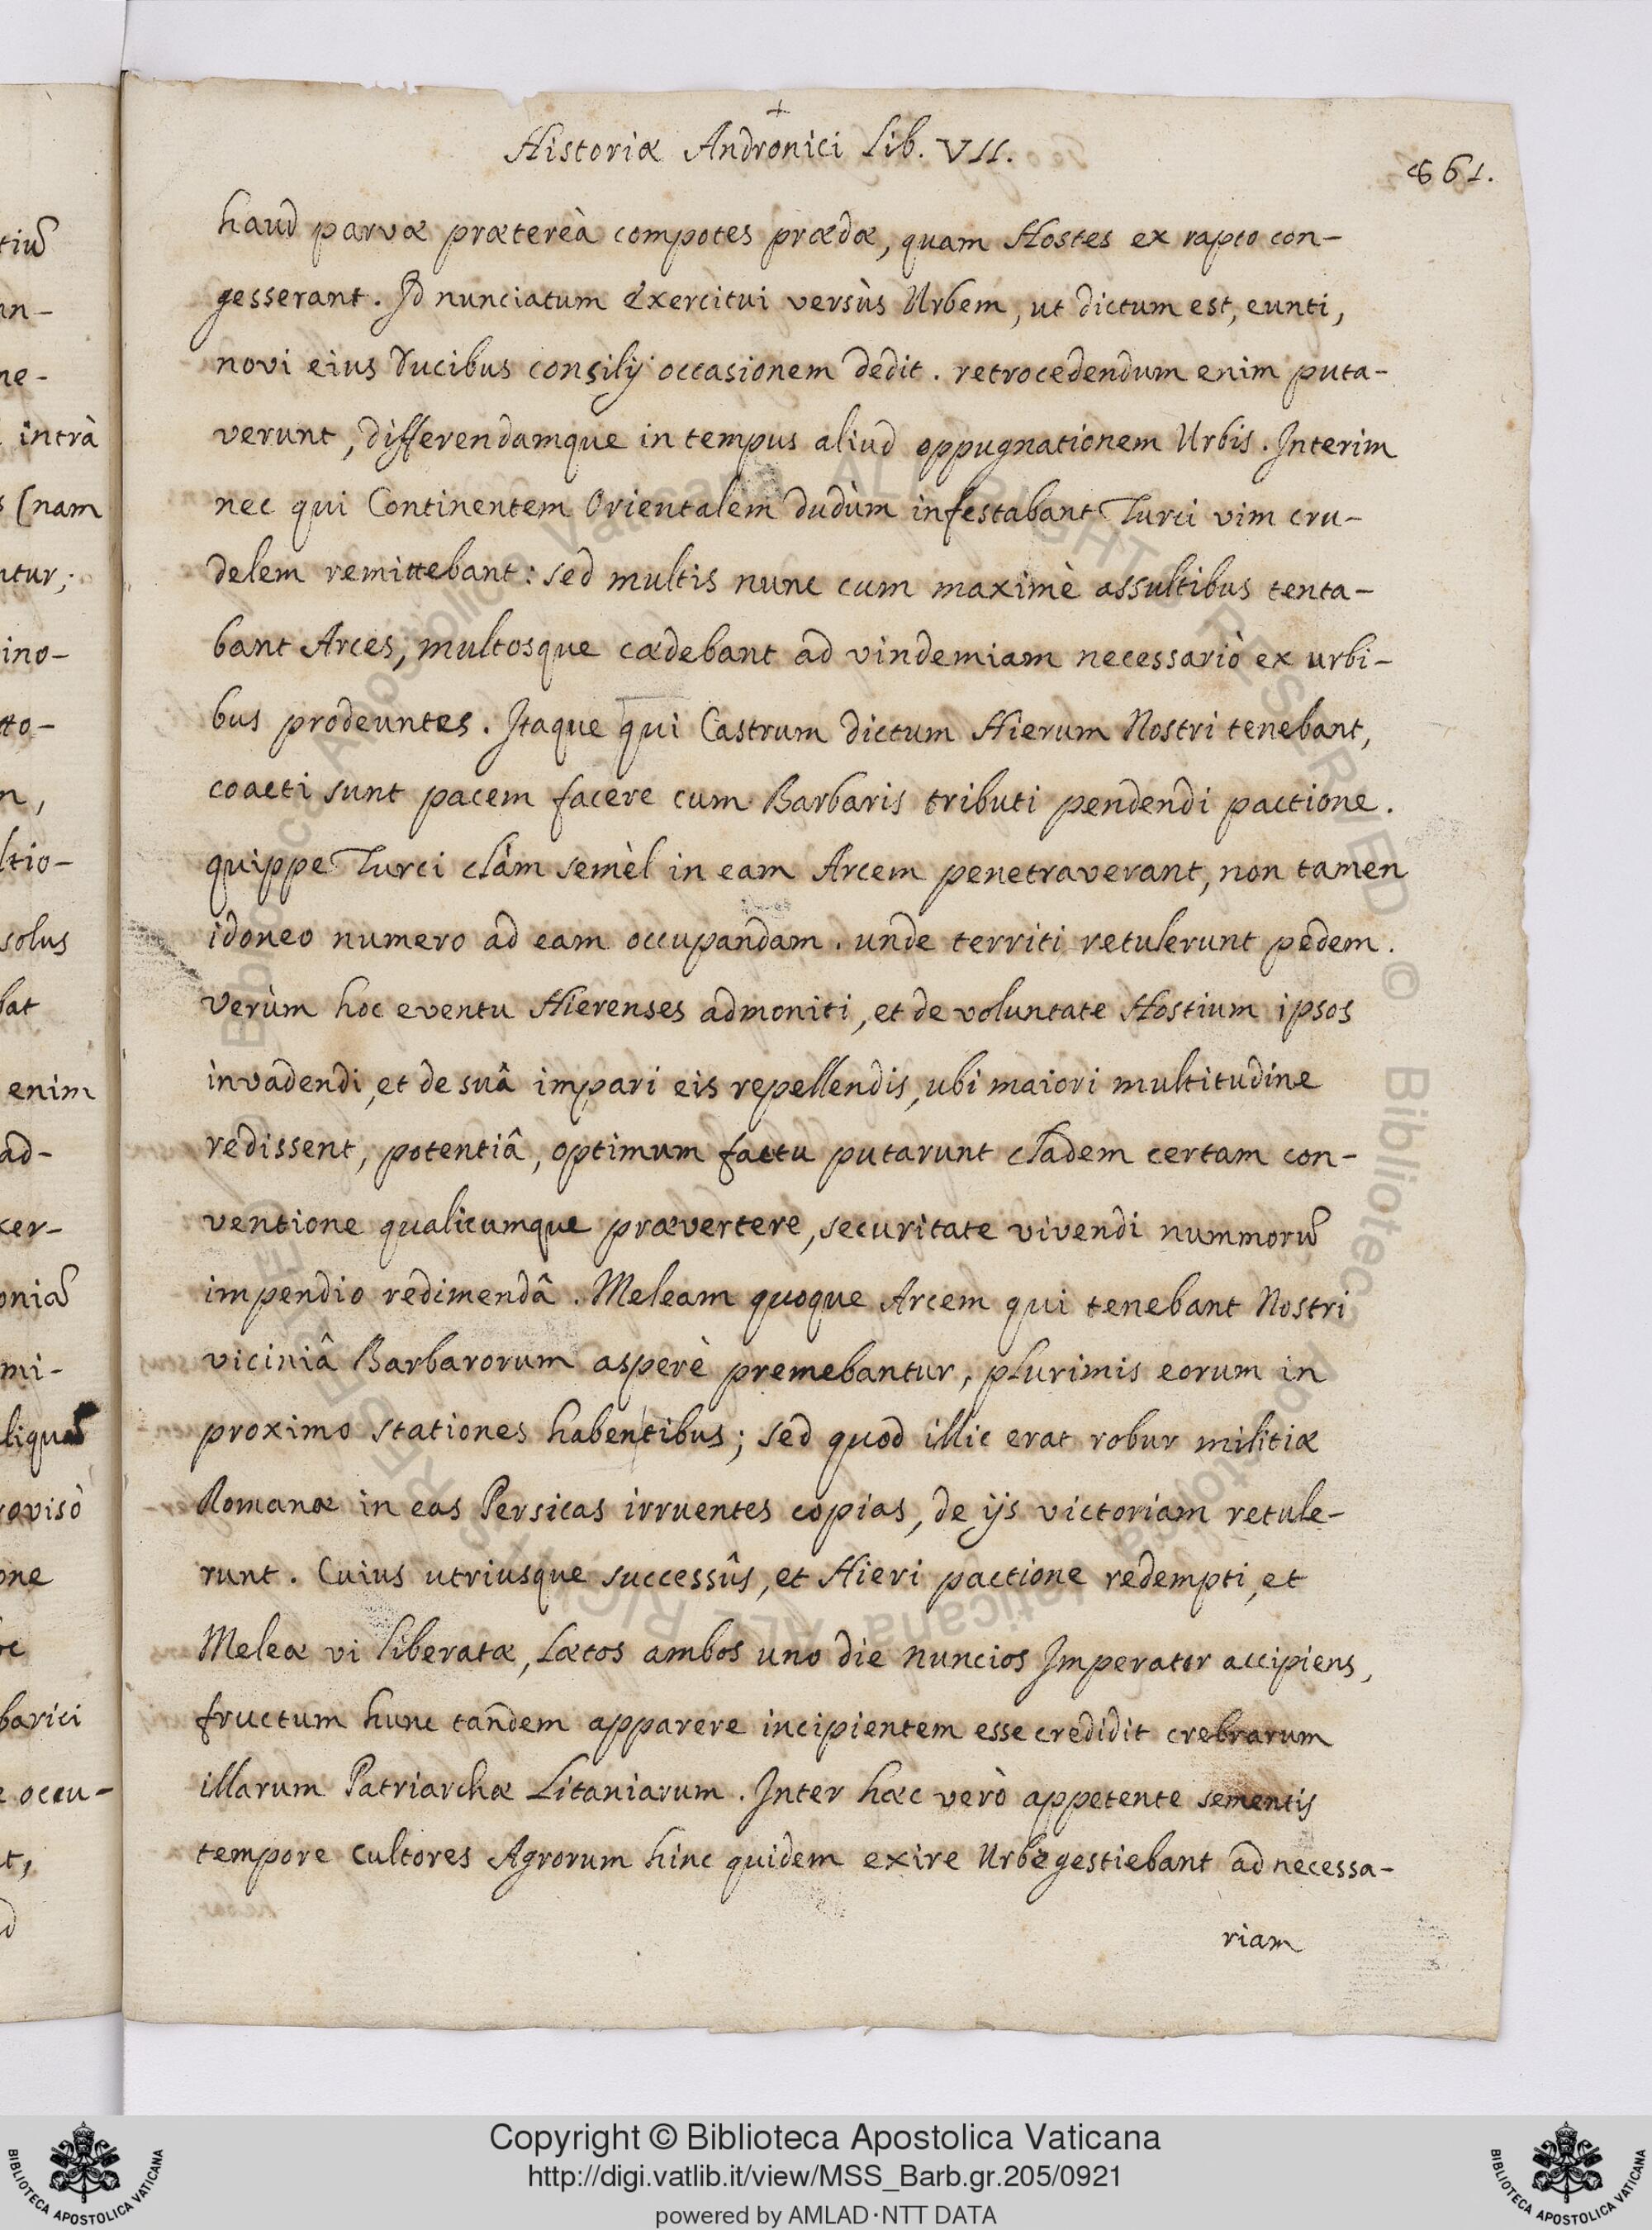 Historiæ Andronici Lib. VII.
861.
haud parvæ præterèa compotes prædæ, quam Hostes ex rapto con-
gesserant. Id nunciatum Exercitui versùs Urbem, ut dictum est, eunti,
novi eius Ducibus consilij occasionem dedit. retrocedendum enim puta-
verunt, differendamque in tempus aliud oppugnationem Urbis. Interim
nec qui Continentem Orientalem dudùm infestabant Turci vim cru-
delem remittebant: sed multis nunc cum maximè assultibus tenta-
bant Arces, multosque cædebant ad vindemiam necessariò ex urbi-
bus prodeuntes. Itaque qui Castrum dictum Hierum Nostri tenebant,
coacti sunt pacem facere cum Barbaris tributi pendendi pactione.
quippe Turci clàm semèl in eam Arcem penetraverant, non tamen
idoneo numero ad eam occupandam. unde territi retulerunt pedem.
Verùm hoc eventu Hierenses admoniti, et de voluntate Hostium ipsos
invadendi, et de suâ impari eis repellendis, ubi maiori multitudine
redissent, potentiâ, optimum factu putarunt cladem certam con-
ventione qualicumque prævertere, securitate vivendi nummorũ
impendio redimendâ. Meleam quoque Arcem qui tenebant Nostri
viciniâ Barbarorum asperè premebantur, plurimis eorum in
proximo stationes habentibus; sed quod illic erat robur militiæ
Romanæ in eas Persicas irruentes copias, de ijs victoriam retule-
runt. Cuius utriusque successûs, et Hieri pactione redempti, et
Meleæ vi liberatæ, Lætos ambos uno die nuncios Imperator accipiens,
fructum hunc tandem apparere incipientem esse credidit crebrarum
illarum Patriarchæ Litaniarum. Inter hæc verò appetente sementis
tempore cultores Agrorum hinc quidem exire Urbe gestiebant ad necessa-
riam
Copyright © Biblioteca Apostolica Vaticana
http://digi.vatlib.it/view/MSS_Barb.gr.205/0921
powered by AMLAD·NTT DATA